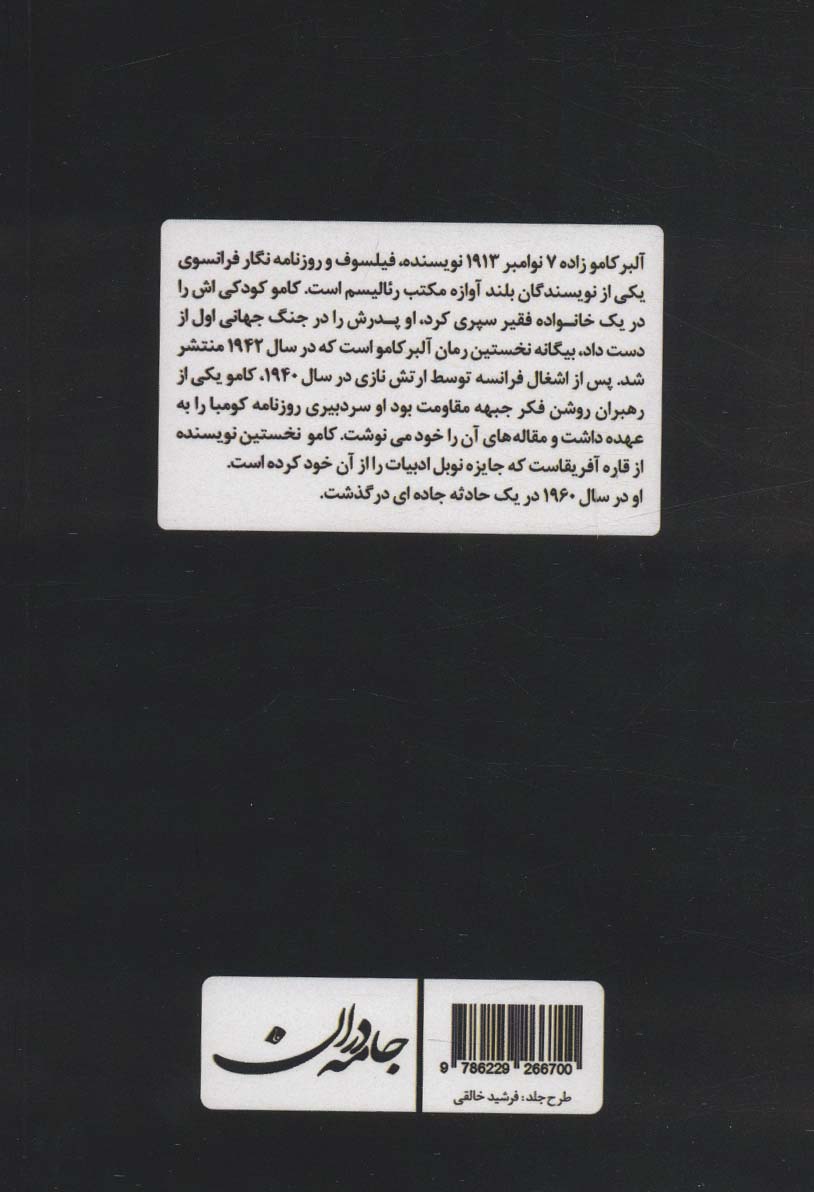 آلبر کامو زاده ۷ نوامبر ۱۹۱۳ نویسنده، فیلسوف و روزنامه نگار فرانسوی
یکی از نویسندگان بلند آوازه مکتب رئالیسم است. کامو کودکی اش را
در یک خانـواده فقیر سپری کرد، او پدرش را در جنگ جهانی اول از
دست داد، بیگانه نخستین رمان آلبر کامو است که در سال ۱۹۴۲ منتشر
شد. پس از اشغال فرانسه توسط ارتش نازی در سال ۱۹۴۰، کامو یکی از
رهبران روشن فکر جبهه مقاومت بود او سردبیری روزنامه کومبا را به
عهده داشت و مقاله‌های آن را خود می نوشت. کامو نخستین نویسنده
از قاره آفریقاست که جایزه نوبل ادبیات را از آن خود کرده است.
او در سال ۱۹۶۰ در یک حادثه جاده ای درگذشت.
9 786229 266700
طرح جلد: فرشید خالقی
جامه دران